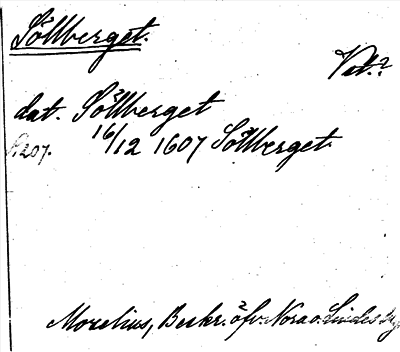 Söllberget.
Vet.?
dat. Söllberget
16/12 1607 Söllberget
S. 207.
Morelius, Beskr. öfv. Nora o. Lindes